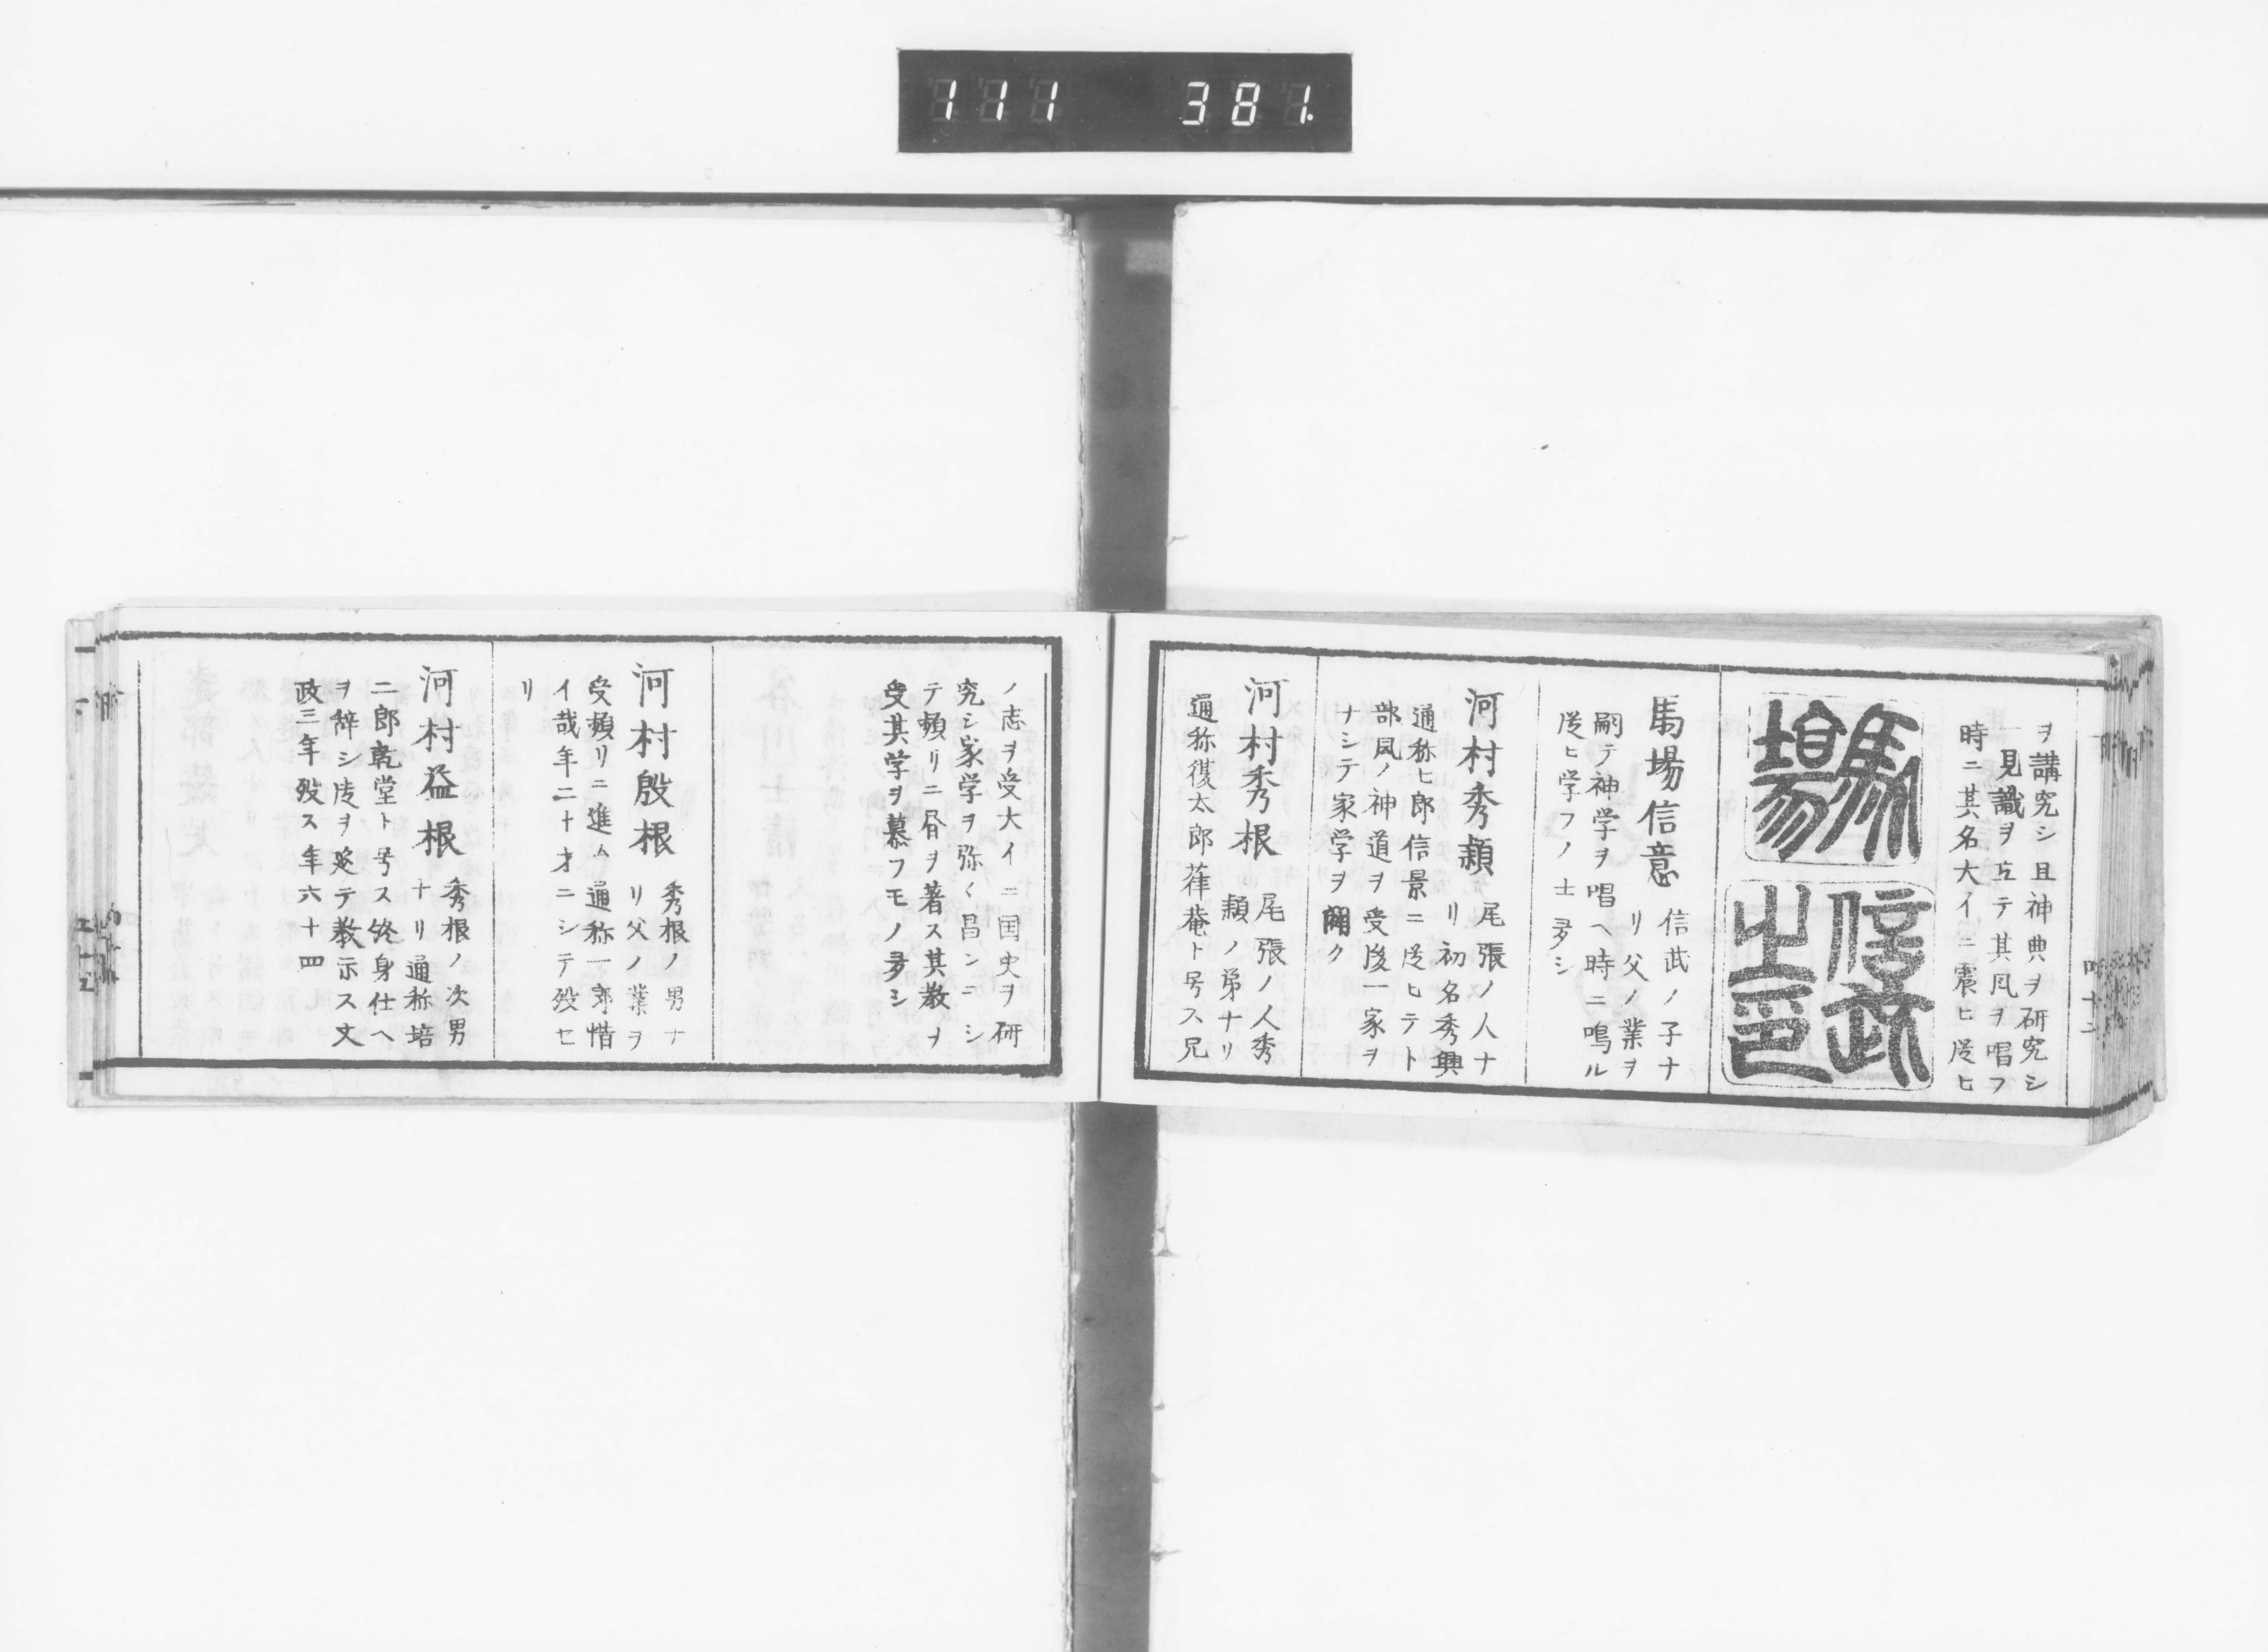 111 381.
ヲ講究シ且神典ヲ研究シ
一見識ヲ立テ其風ヲ唱フ
時ニ其名大イニ震ヒ従ヒ
馬場
信武
之印
馬場信意
信武ノ子ナ
リ父ノ業ヲ
嗣テ神学ヲ唱ヘ時ニ鳴ル
従ヒ学フノ士多シ
河村秀頴
尾張ノ人ナ
リ初名秀興
通称七郎信景ニ従ヒテト
部風ノ神道ヲ受後一家ヲ
ナシテ家学ヲ開ク
河村秀根
尾張ノ人秀
頴ノ弟ナリ
通称復太郎葎菴ト号ス兄
ノ志ヲ受大イニ国史ヲ研
究シ家学ヲ弥〻昌ンニシ
テ頻リニ書ヲ著ス其教ヲ
受其学ヲ慕フモノ多シ
河村殷根
秀根ノ男ナ
リ父ノ業ヲ
受頻リニ進ム通称一郎惜
イ哉年二十才ニシテ歿セ
リ
河村益根
秀根ノ次男
ナリ通称培
二郎乾堂ト号ス終身仕ヘ
ヲ辞シ徒ヲ延テ教示ス文
政三年歿ス年六十四